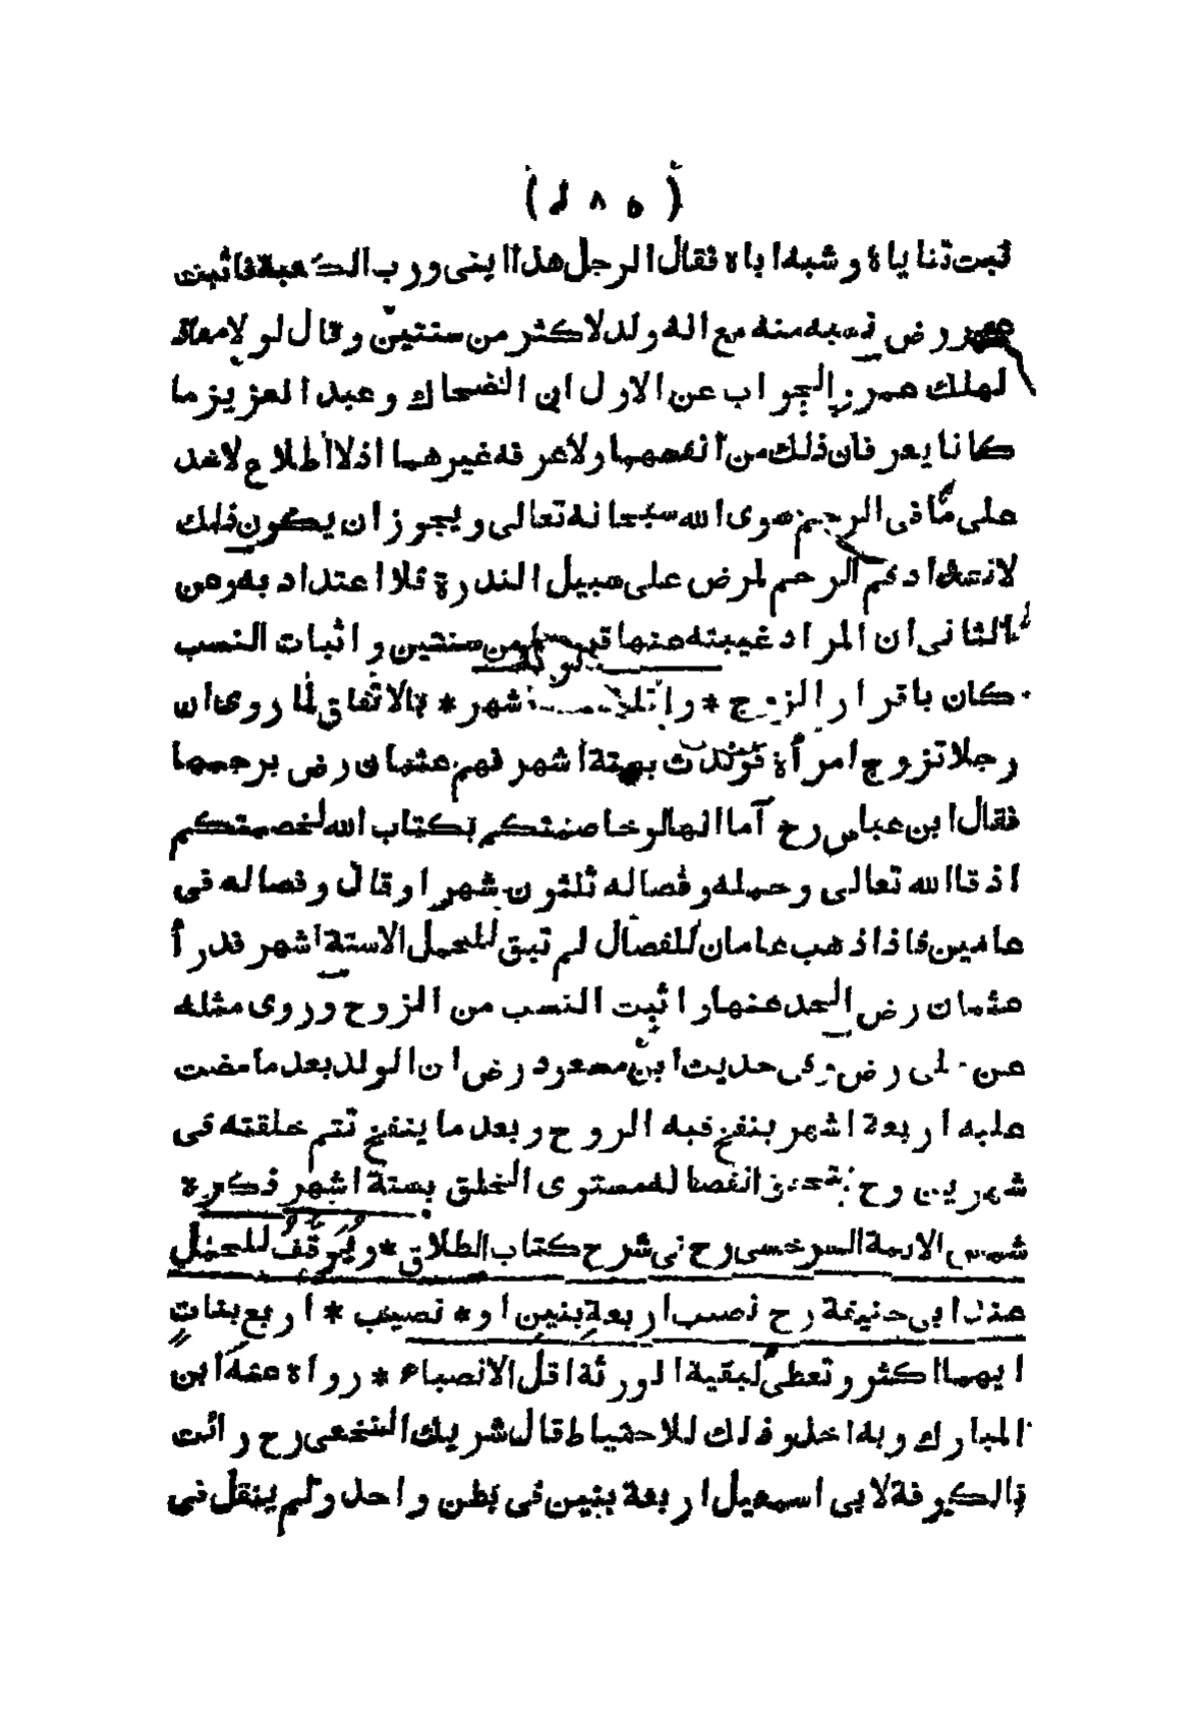 نبتت ثناياه وشبه اباه فقال الرجل هذا ابنى ورب الكعبة فاثبت
عمر رض نسبه منه مع انه ولد لاكثر من سنتين وقال لولا معاذ
لهلك عمر والجواب عن الاول ان الضحاك وعبد العزيز ما
كانا يعرفان ذلك من انفسهما ولا عرفه غيرهما اذ لا اطلاع لاحد
على ما فى الرحم سوى الله سبحانه تعالى ويجوز ان يكون ذلك
لانسداد فم الرحم لمرض على سبيل الندرة فلا اعتداد به وعن
الثانى ان المراد غيبته عنها قريبا من سنتين واثبات النسب
كان باقرار الزوج * واقله ستة اشهر * بالاتفاق لما روى ان
رجلا تزوج امرأة فولدت بستة اشهر فهم عثمان رض برجمها
فقال ابن عباس رح اما انها لو خاصمتكم بكتاب الله لخصمتكم
اذ قال الله تعالى وحمله وفصاله ثلثون شهرا وقال وفصاله فى
عامين فاذا ذهب عامان للفصال لم تبق للحمل الا ستة اشهر فدرأ
عثمان رض الحد عنها واثبت النسب من الزوج وروى مثله
عن على رض وفى حديث ابن مسعود رض ان الولد بعد ما مضت
عليه اربعة اشهر ينفخ فيه الروح وبعد ما ينفخ تتم خلقته فى
شهرين وح يتحقق انفصاله مستوى الخلق بستة اشهر ذكره
شمس الايمة السرخسى رح فى شرح كتاب الطلاق * ويوقف للحمل
عند ابى حنيفة رح نصيب اربعة بنين او * نصيب * اربع بنات
ايهما اكثر وتعطى لبقية الورثة اقل الانصباء * رواه عنه ابن
المبارك وبه اخذ وذلك للاحتياط قال شريك النخعى رح رائت
بالكوفة لابى اسمعيل اربعة بنين فى بطن واحد ولم ينقل فى